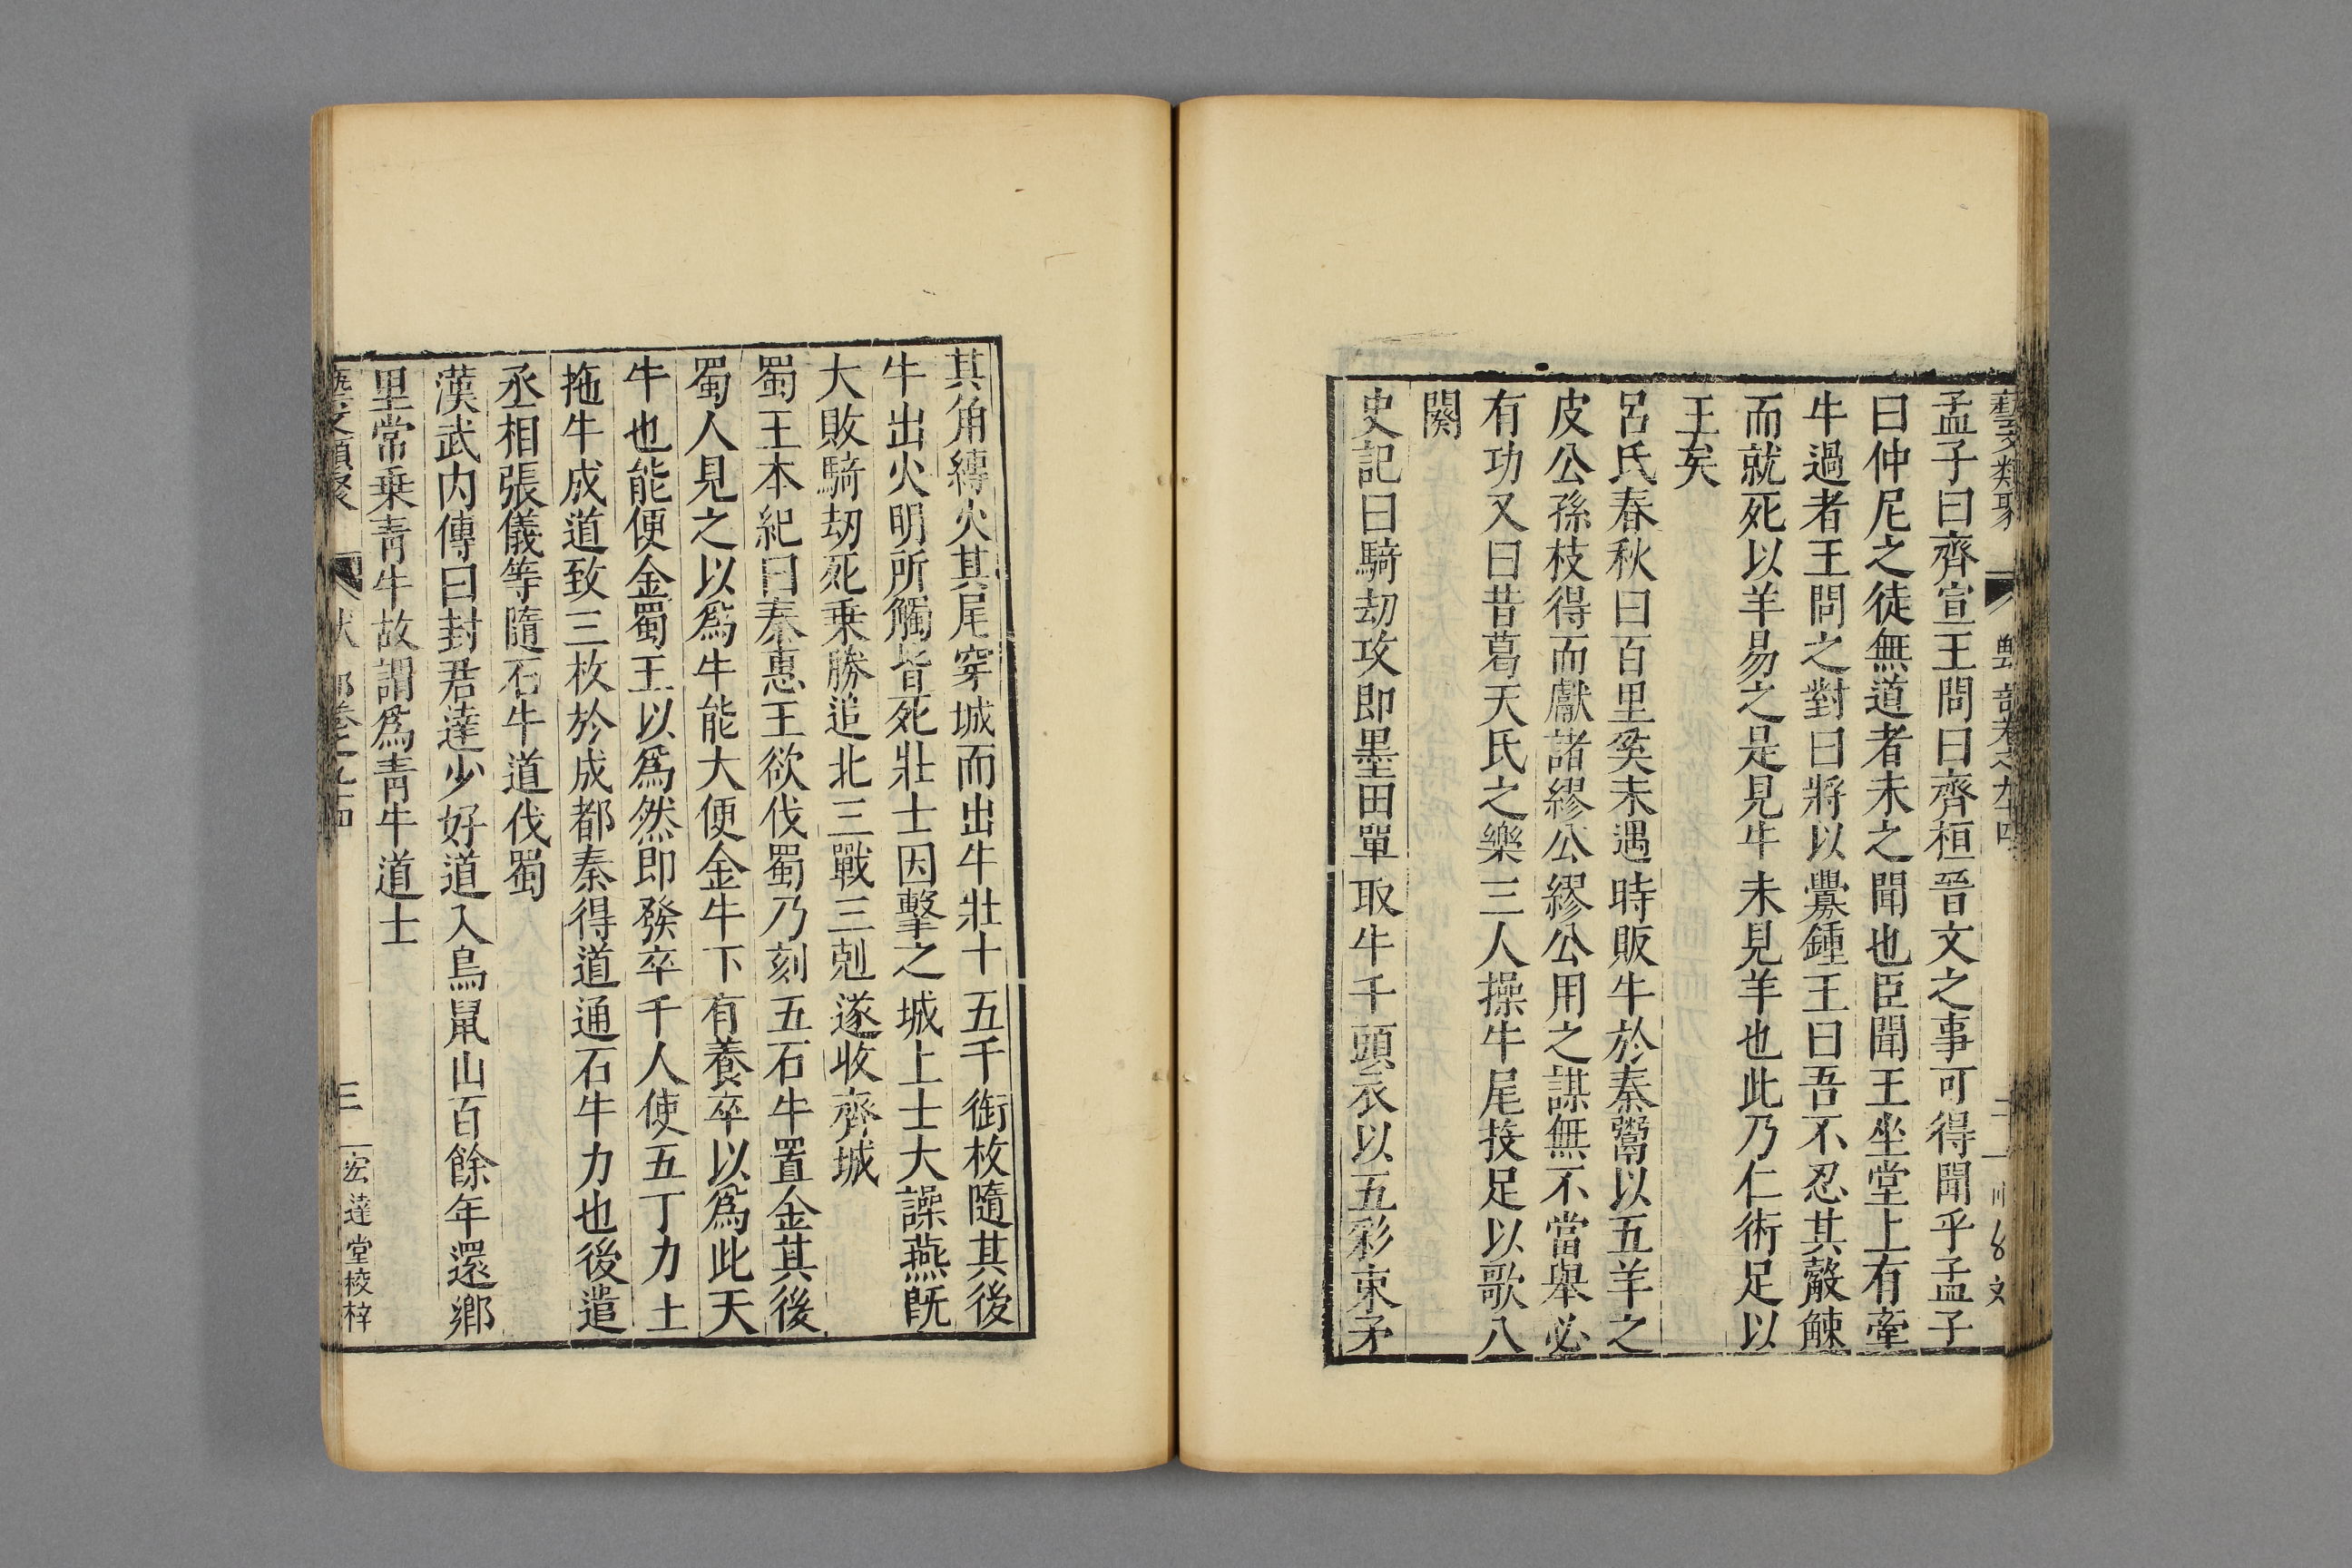 藝文類聚
孟子曰齊宣王問曰齊桓晉文之事可得聞乎孟子
曰仲尼之徒無道者未之聞也臣聞王坐堂上有牽
牛過者王問之對曰將以釁鍾王曰吾不忍其觳觫
而就死以羊易之是見牛未見羊也此乃仁術足以
王矣
呂氏春秋曰百里奚未遇時販牛於秦鬻以五羊之
皮公孫枝得而獻諸繆公繆公用之謀無不當舉必
有功又曰昔葛天氏之樂三人操牛尾投足以歌八
闋
史記曰騎劫攻即墨田單取牛千頭衣以五彩束矛
其角縛火其尾穿城而出牛壯士五千銜枚隨其後
牛出火明所觸皆死壯士因擊之城上士大譟燕既
大敗騎劫死乗勝追北三戰三剋遂收齊城
蜀王本紀曰秦惠王欲伐蜀乃刻五石牛置金其後
蜀人見之以爲牛能大便金牛下有養卒以爲此天
牛也能便金蜀王以爲然即發卒千人使五丁力士
拖牛成道致三枚於成都秦得道通石牛力也後遣
丞相張儀等隨石牛道伐蜀
漢武內傳曰封君達少好道入鳥鼠山百餘年還鄉
里常乗靑牛故謂爲靑牛道士
藝文類聚 獸部卷之九十四 三 宏達堂校梓